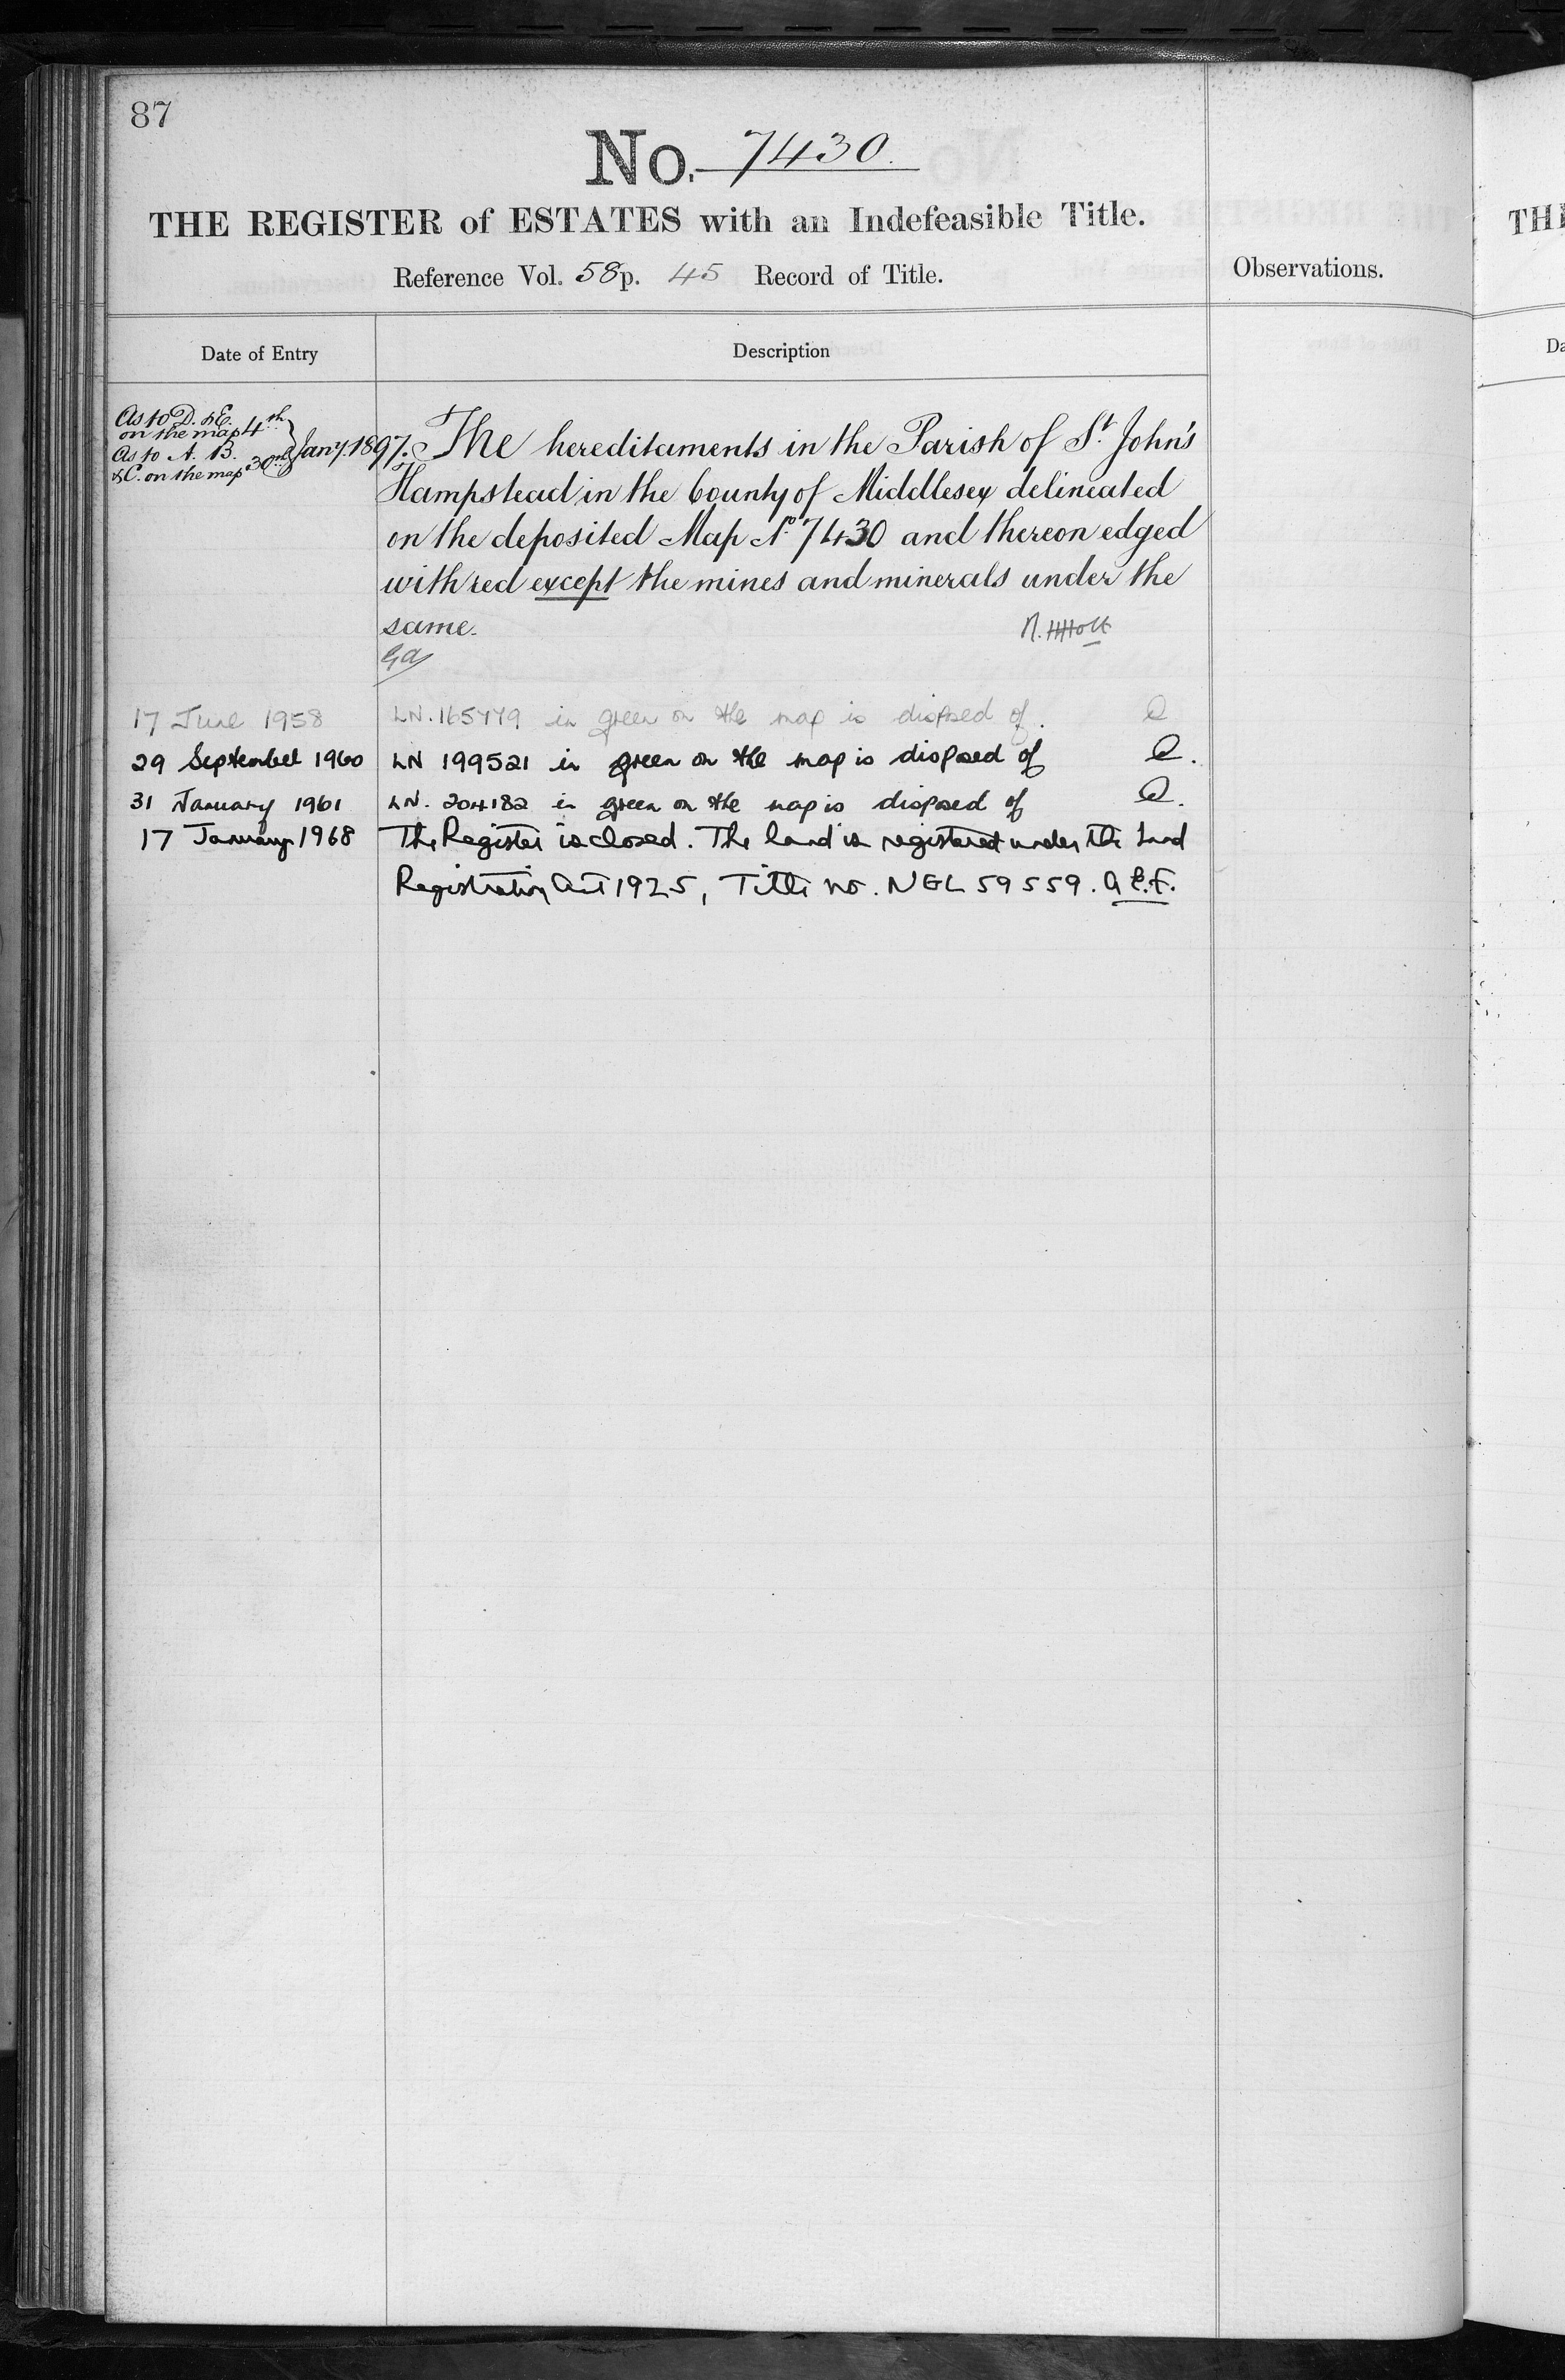 87
No. 7430.
THE REGISTER of ESTATES with an Indefeasible Title.
Reference Vol. 58 p. 45 Record of Title.
Observations.
Date of Entry
Description
As to D. & E.
on the map 4th
As to A. B.
& C. on the map 30th
} Jany. 1897.
The hereditaments in the Parish of St. John's
Hampstead in the County of Middlesex delineated
on the deposited Map No. 7430 and thereon edged
with red except the mines and minerals under the
same.
17 June 1958 LN. 165779 in green on the map is disposed of.
29 September 1960 LN 199521 in green on the map is disposed of
31 January 1961 LN. 204182 in green on the map is disposed of
17 January 1968 The Register is closed. The land is registered under the Land
Registration Act 1925, Title no. NGL 59559.
THE
Da